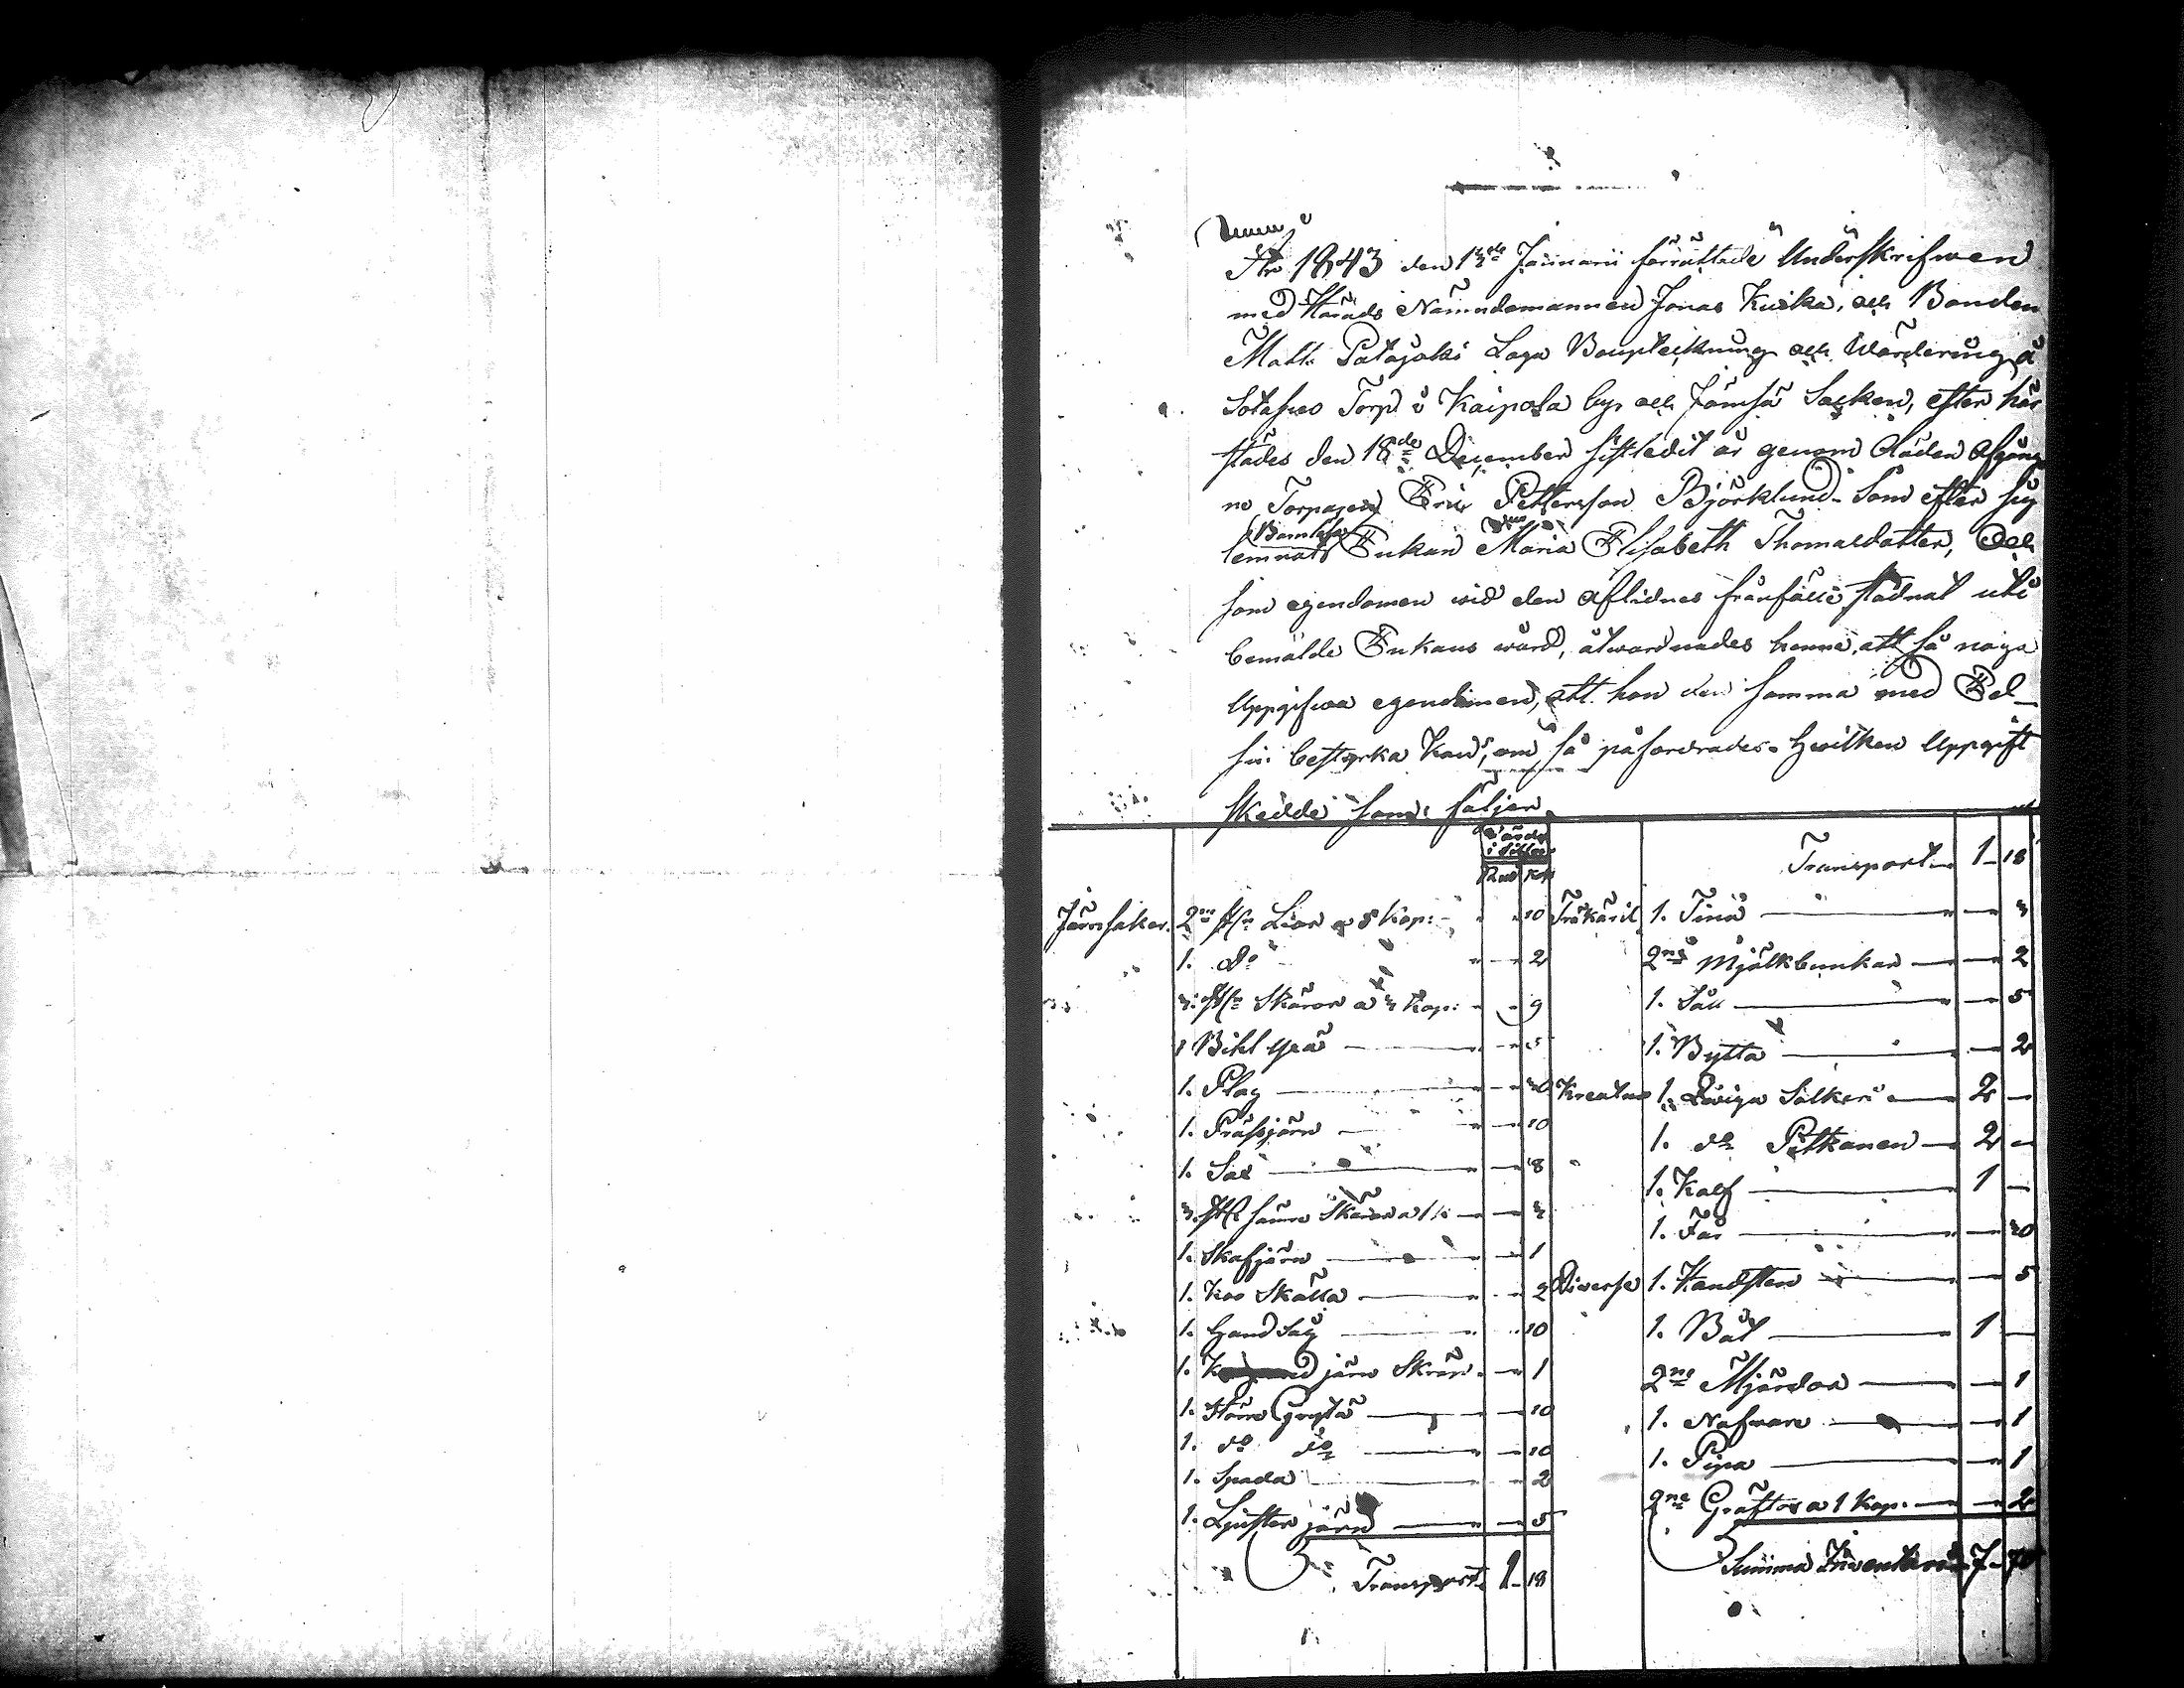 År 1843 den 13de Januarii förrättade Underskrifwen
med Härads Nämndemannen Jonas Kuika, och Bonden
Matts Patajoki Laga Bouptekning och Wärdering å
Sotapuro Torp i Kaipola by och Jämsä Socken, efter här
städes den 18de December sistledit år genom döden afgång
ne Torparen Eric Pettersson Björklund som efter sig
(Barnlösa)
lemnat Enkan Maria Elisabeth Thomasdotter, Och
som egendomen wid den aflidnes frånfälle stadnat uti
bemälde Enkans wård, åtwarnades henne, att så noga
Uppgifwa egendomen, att hon den samma med Ed_
sin bestyrka kan, om så påfordrades. Hwilken Uppgift
skedde som följer
Wärde
i Silfwer
Rub Kop
Järnsaker. 2ne st. Liar a 5 Kop: 10
1. do 2
3. st. Skäror a 3 Kop: 9
1 Bihl yxa 5
1. Plog 30
1. Fräsjärn 10
1. Sax 8
3. st. sämre Skäror a 1 k 3
1. Skafjärn 1
1. Koo Skälla 2
1. Hand Såg 10
1. järn Skrap 1
1. Järn Gryta 10
1. do do 10
1. Spada 2
1. Ljusterjärn 5
Transport 1 18
Transport 1 18
Träkäril 1. Tina 3
2ne Mjölkbunkar 2
1. Såll 5
1. Bytta 2
Kreatur 1. Qwiga Sälkeri 2
1. do Pitkanen 2
1. Kalf 1
1. Får 30
Diverse 1. Handsten 5
1. Båt 1
2ne Mjärdor 1
1. Nafware 1
1. Pipa 1
2ne Gräftor a 1 Kop. 2
Summa Inventarium 7 70